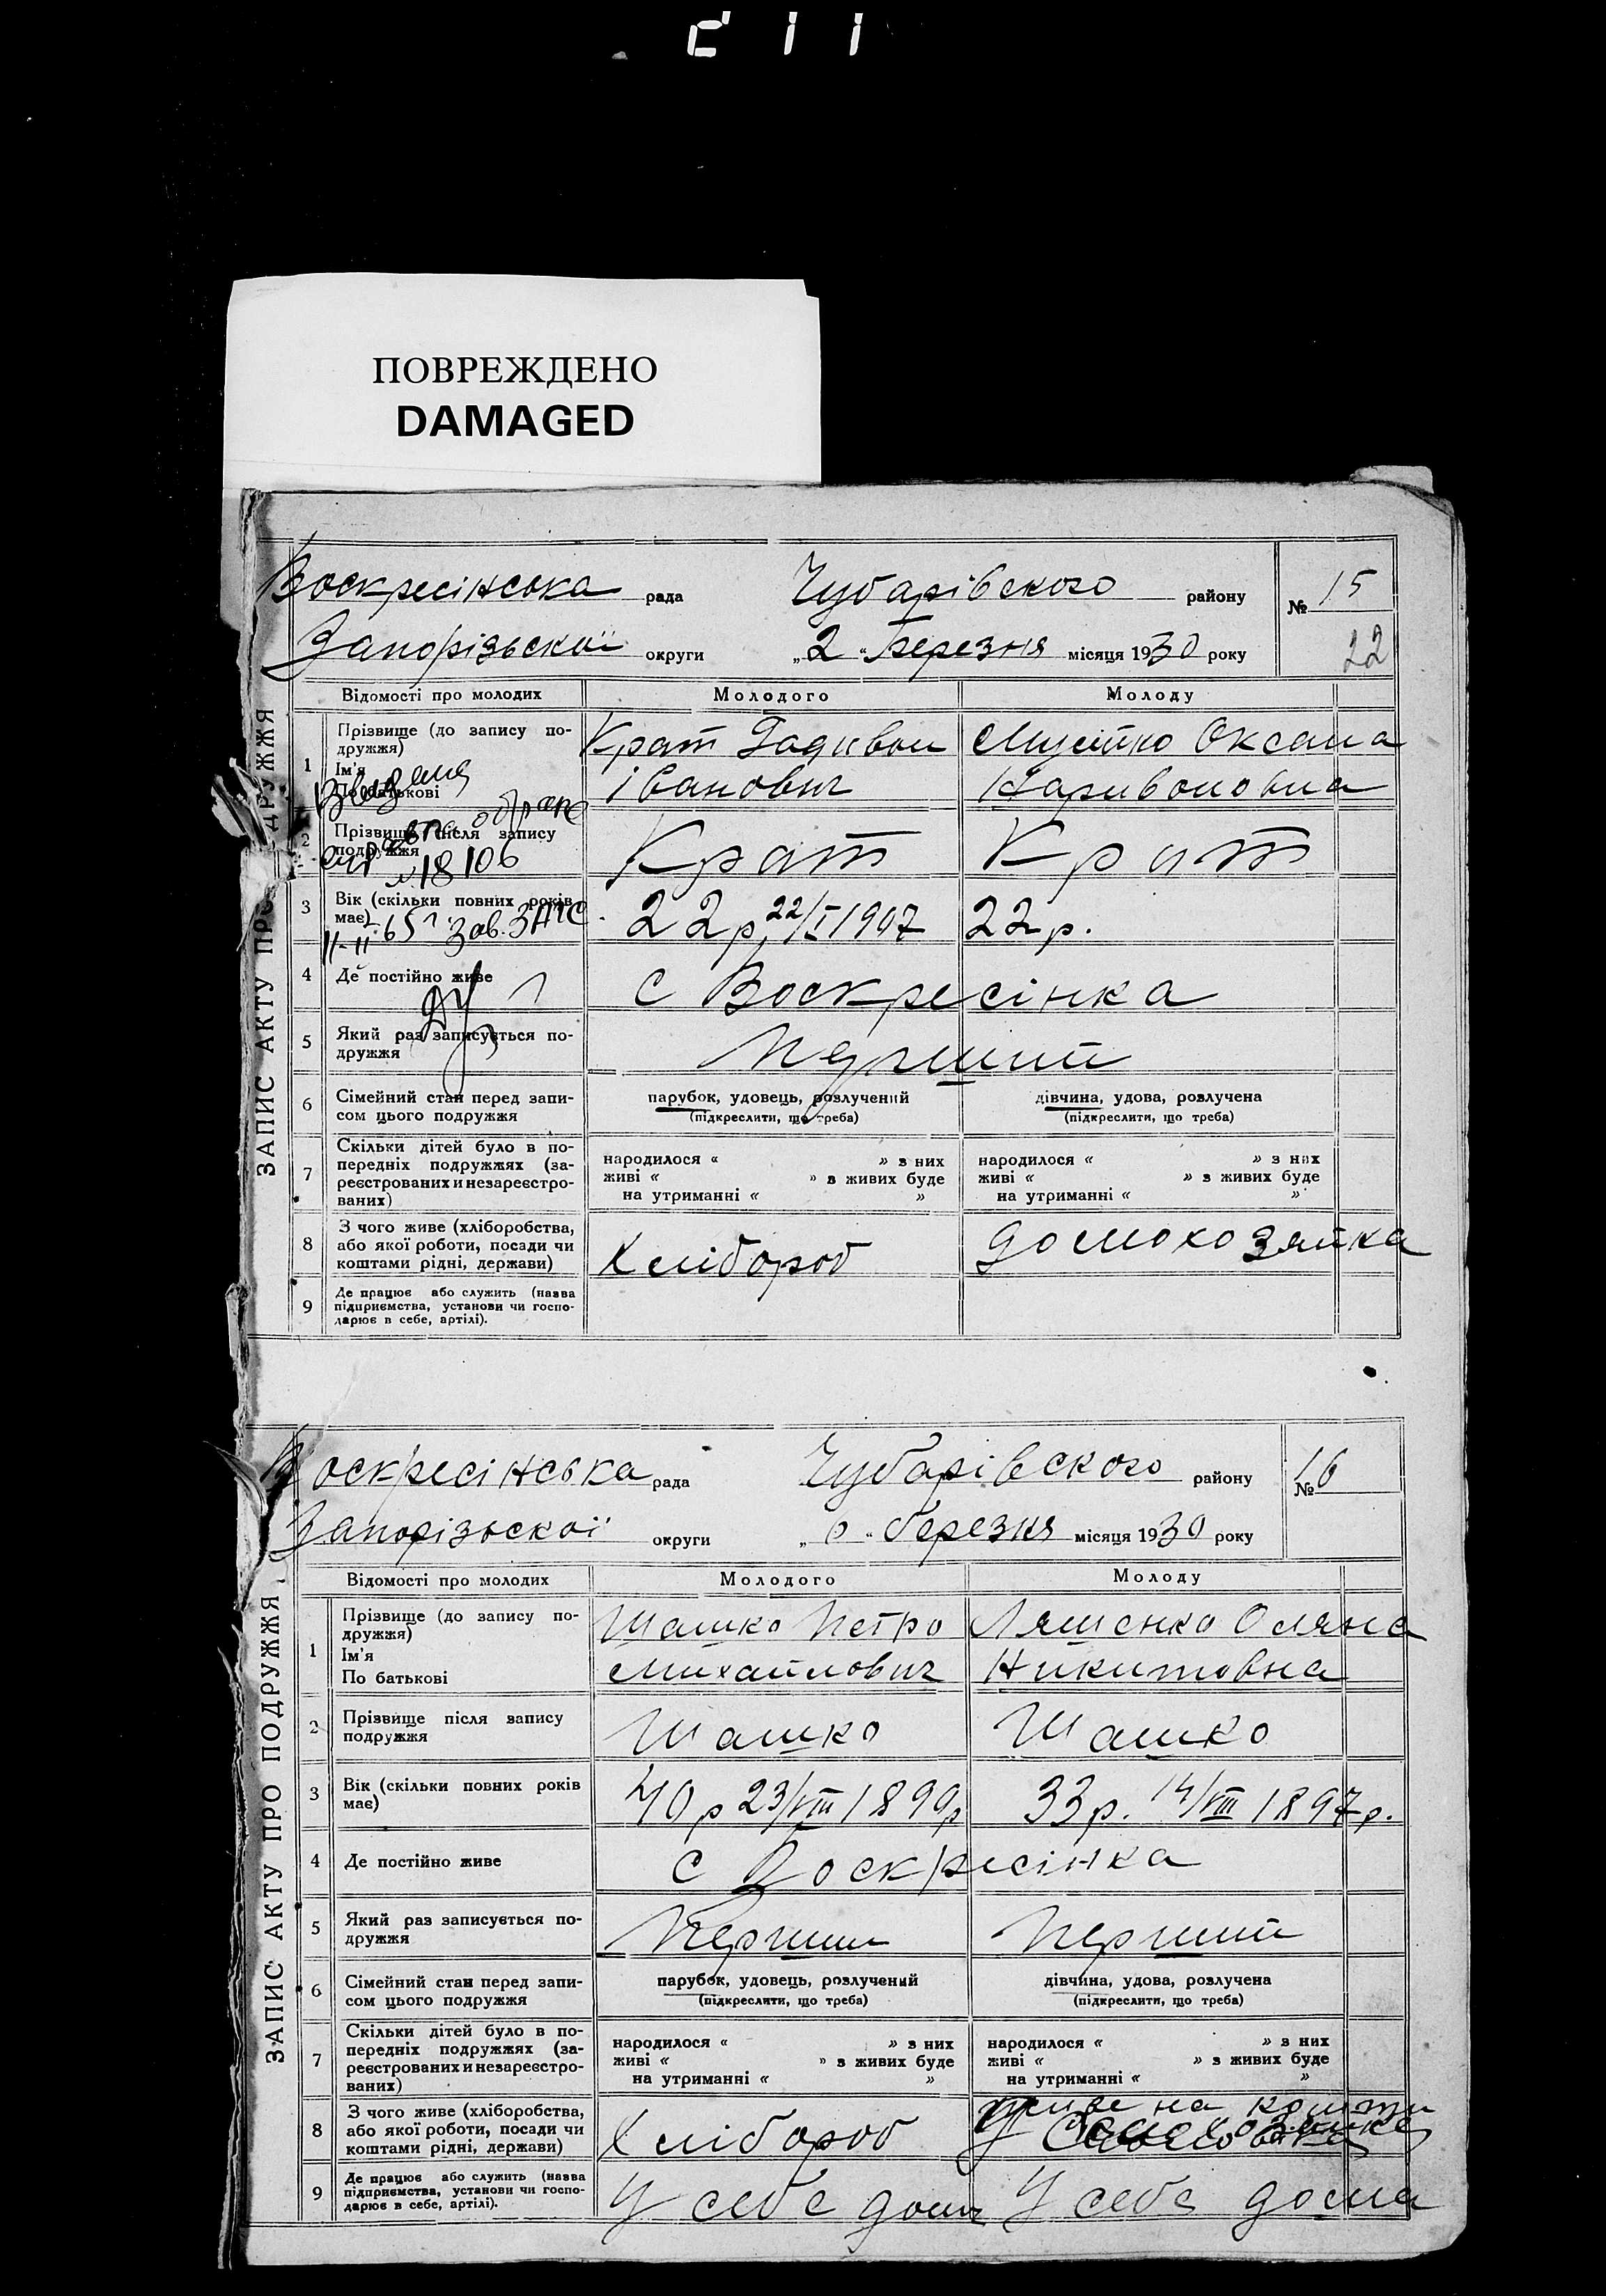 ПОВРЕЖДЕНО
DAMAGED
Воскресінська рада Чубарівского району № 15
Запорізьскої округи „2“ Березня місяця 1930 року 22
ЗАПИС АКТУ ПРО ДРУЖЖЯ
Відомості про молодих Молодого Молоду
1 Прізвище (до запису по-
дружжя)
Ім'я
По батькові
Крат Іванович
Оксана
Видана
2 Прізвище після запису
подружжя
Крат Крат
№ 18106
3 Вік (скільки повних років
має)
22 р. 22/I 1907 22 р.
11-II-65 г. Зав. ЗАГС
4 Де постійно живе с Воскресінка
5 Який раз записується по-
дружжя
Перший
6 Сімейний стан перед запи-
сом цього подружжя
парубок, удовець, розлучений
(підкреслити, що треба)
дівчина, удова, розлучена
(підкреслити, що треба)
7 Скільки дітей було в по-
передніх подружжях (за-
реєстрованих и незареєстро-
ваних)
народилося « » з них
живі « » з живих буде
на утриманні « »
народилося « » з них
живі « » з живих буде
на утриманні « »
8 З чого живе (хліборобства,
або якої роботи, посади чи
коштами рідні, держави)
Хлібороб домохозяйка
9 Де працює або служить (назва
підприємства, установи чи госпо-
дарює в себе, артілі).
Воскресінська рада Чубарівского району № 16
Запорізьскої округи „ “ березня місяця 1930 року
ЗАПИС АКТУ ПРО ПОДРУЖЖЯ
Відомості про молодих Молодого Молоду
1 Прізвище (до запису по-
дружжя)
Ім'я
По батькові
Шашко Петро Ляшенко Оляна
Михайлович Никитовна
2 Прізвище після запису
подружжя
Шашко Шашко
3 Вік (скільки повних років
має)
40 р 23/VIII 1899р 33р. 14/VIII 1897р.
4 Де постійно живе с Воскресінка
5 Який раз записується по-
дружжя
Перший Перший
6 Сімейний стан перед запи-
сом цього подружжя
парубок, удовець, розлучений
(підкреслити, що треба)
дівчина, удова, розлучена
(підкреслити, що треба)
7 Скільки дітей було в по-
передніх подружжях (за-
реєстрованих и незареєстро-
ваних)
народилося « » з них
живі « » з живих буде
на утриманні « »
народилося « » з них
живі « » з живих буде
на утриманні « »
8 З чого живе (хліборобства,
або якої роботи, посади чи
коштами рідні, держави)
Хлібороб
живе на кошти
9 Де працює або служить (назва
підприємства, установи чи госпо-
дарює в себе, артілі).
У себе дома У себе дома